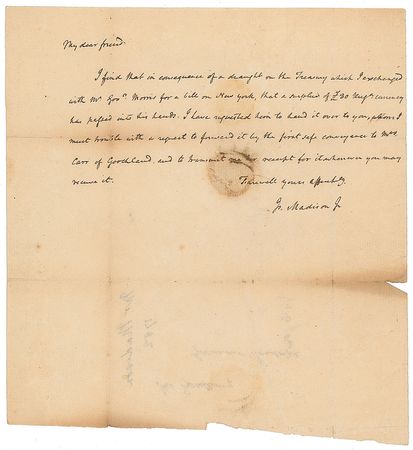 My dear friend.
I find that in consequence of a draught on the Treasury which I exchanged
with Mr Govr Morris for a bill on New York, that a surplus of £30 currency
has passed into his hands. I have requested him to hand it over to you, whom I
must trouble with a request to forward it by the first safe conveyance to Mrs
Carr of Goochland and to transmit me her receipt for it whenever you may
receive it. Farewell yours affectly.
Js. Madison Jr